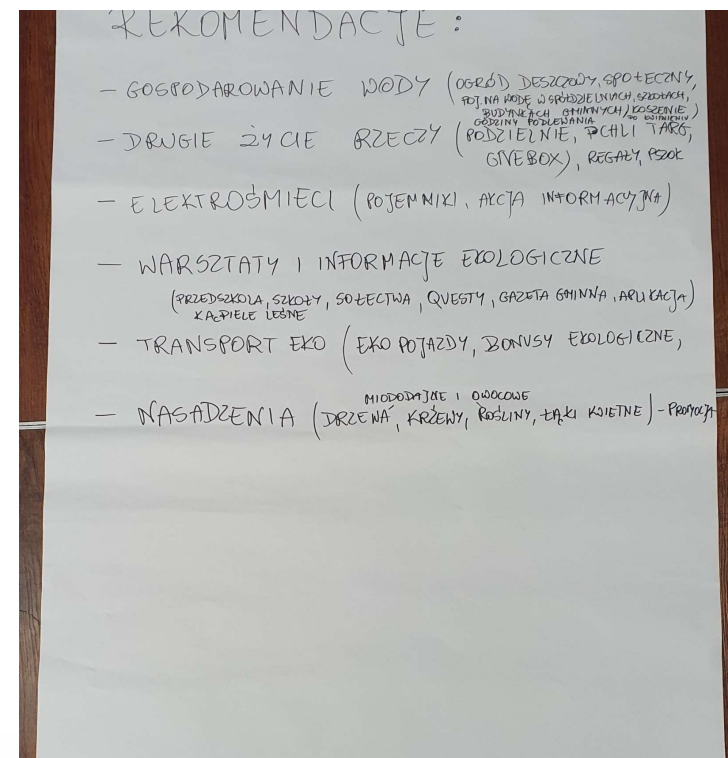 REKOMENDACJE:
- GOSPODAROWANIE WODY (OGRÓD DESZCZOWY, SPOŁECZNY,
POJ. NA WODĘ W SPÓŁDZIELNIACH, SZKOŁACH,
BUDYNKACH GMINNYCH) KOSZENIE)
GODZINY PODLEWANIA PO KWITNIENIU
- DRUGIE ŻYCIE RZECZY (PODZIELNIE, PCHLI TARG,
GIVEBOX), REGAŁY, PSZOK
- ELEKTROŚMIECI (POJEMNIKI, AKCJA INFORMACYJNA)
- WARSZTATY I INFORMACJE EKOLOGICZNE
(PRZEDSZKOLA, SZKOŁY, SOŁECTWA, QUESTY, GAZETA GMINNA, APLIKACJA)
KĄPIELE LEŚNE
- TRANSPORT EKO (EKO POJAZDY, BONUSY EKOLOGICZNE,
MIODODAJNE I OWOCOWE
- NASADZENIA (DRZEWA, KRZEWY, ROŚLINY, ŁĄKI KWIETNE) - PROMOCJA